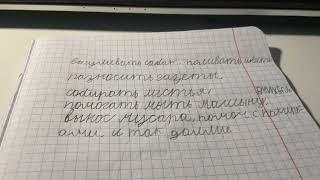 выгуливать собак. поливать цветы
разносить газеты.
собирать листья
помогать мыть машину.
вынос мусора, помоч с
ами. и так далие